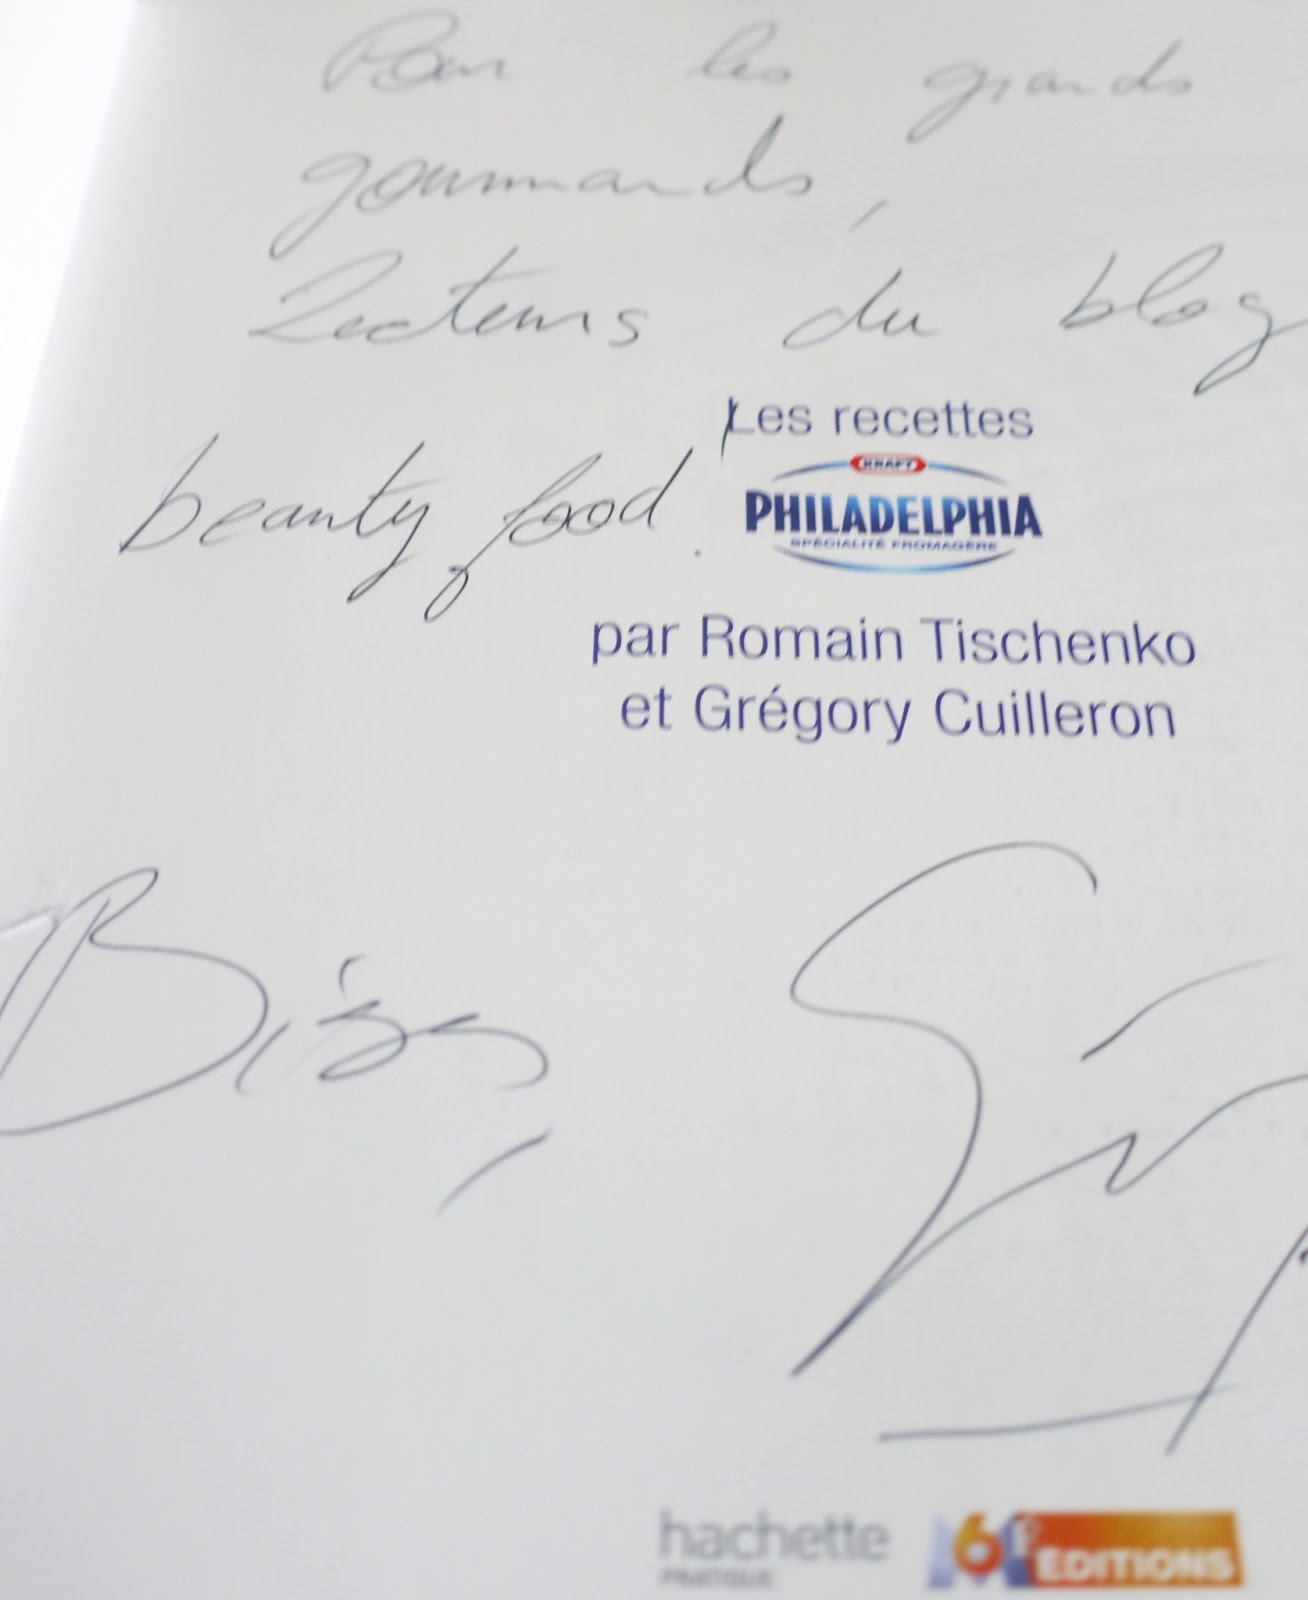 Pour les grands
gourmands,
Lecteurs du blog
beauty food.
Les recettes
KRAFT
PHILADELPHIA
SPÉCIALITÉ FROMAGÈRE
par Romain Tischenko
et Grégory Cuilleron
hachette
PRATIQUE
M6 EDITIONS